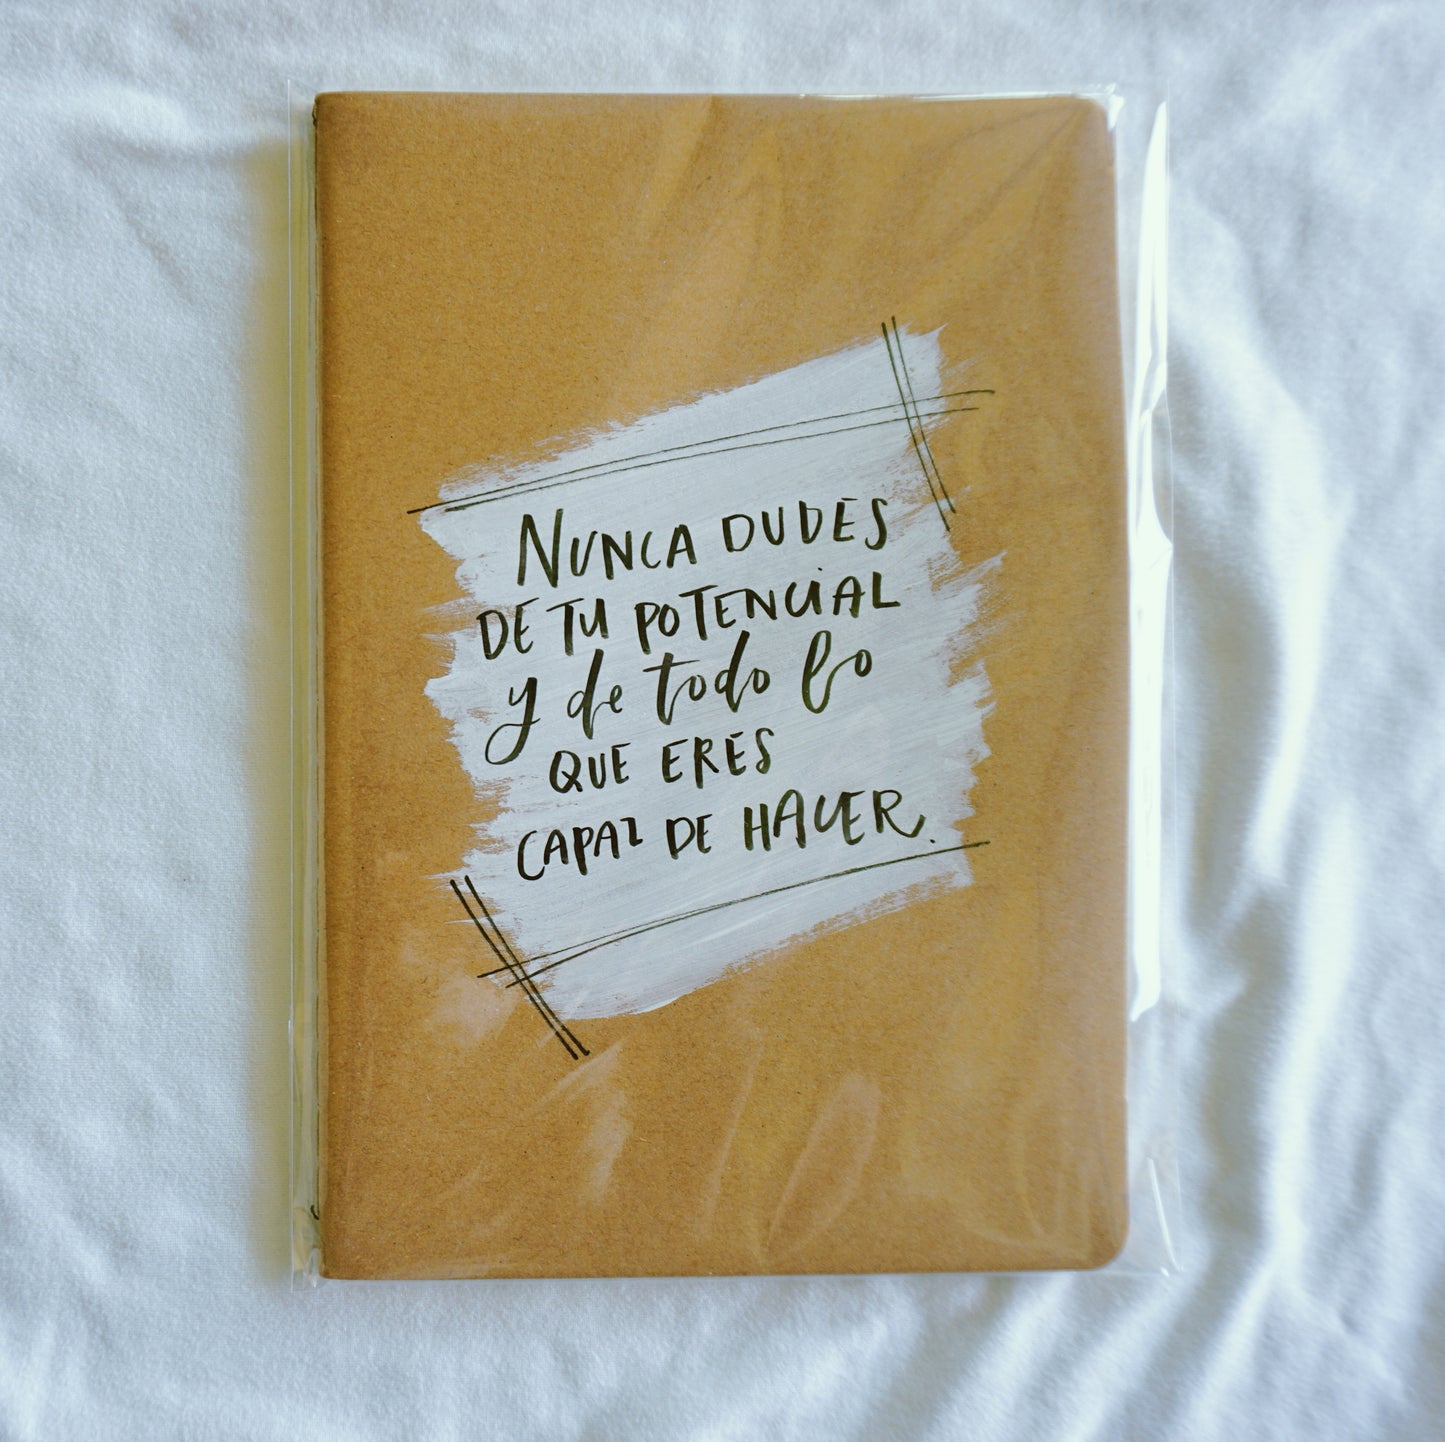 NUNCA DUDES
DE TU POTENCIAL
y de todo lo
QUE ERES
CAPAZ DE HACER.